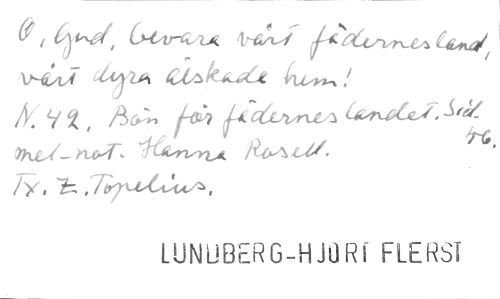 O, Gud, bevara vårt fädernesland,
vårt dyra älskade hem!
N. 42. Bön för fäderneslandet. Sid. 46.
mel-not. Hanna Rosell.
Tx. Z. Topelius.
LUNDBERG-HJORT FLERST